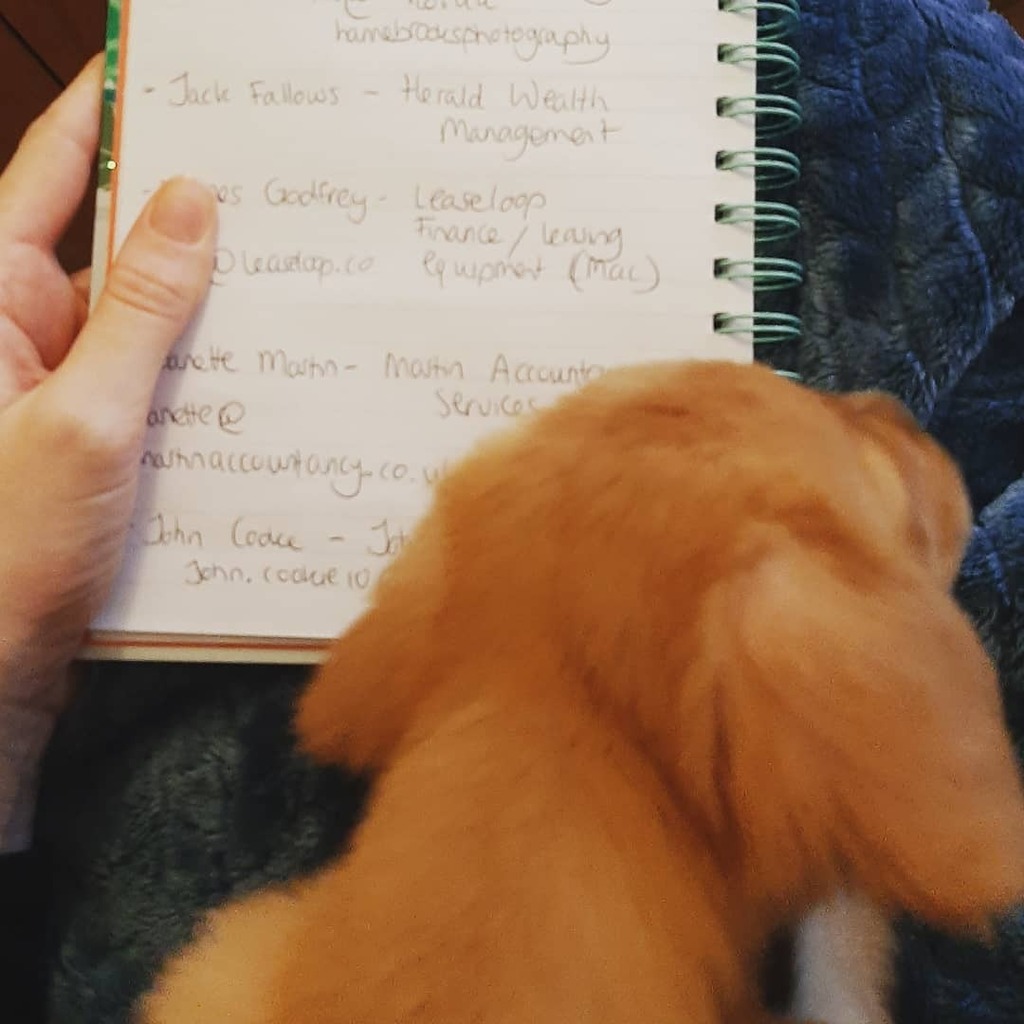 hamebrooksphotography
- Jack Fallows - Herald Wealth
Management
Godfrey - Leaseloop
Finance / leasing
@leaseloop.co equipment (Mac)
anette Martin - Martin Accounta
Services
anette@
martinaccountancy.co.u
John Cooke - Joh
John.cooke10